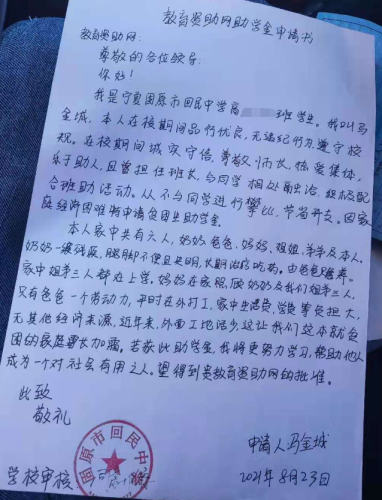 教育资助网助学金申请书
教育资助网：
尊敬的各位领导：
你好！
我是宁夏固原市回民中学高 班学生。我叫马
金城，本人在校期间品行优良，无违纪行为遵守校
规。在校期间诚实守信，尊敬师长，热爱集体，
乐于助人，且曾担任班长，与同学相处融洽，积极配
合班助活动。从不与同学进行攀比，节省开支。因家
庭经济困难特申请贫困生助学金。
本人家中共有六人，奶奶，爸爸，妈妈，姐姐，弟弟及本人。
奶奶一级残疾，腿脚不便且失明，长期治疗吃药。由爸爸赡养。
家中姐弟三人都在上学。妈妈在家照顾奶奶及我们姐弟三人，
只有爸爸一个劳动力，平时在外打工，家中生活费，学费等负担大，
无其他经济来源，近年来，外面工地活少这让我们这本就贫
困的家庭雪上加霜。若获此助学金，我将更努力学习，帮助他人
成为一个对社会有用之人。望得到贵教育资助网的批准。
此致
敬礼
申请人马金城
学校审核
2021年8月23日
固原市回民中